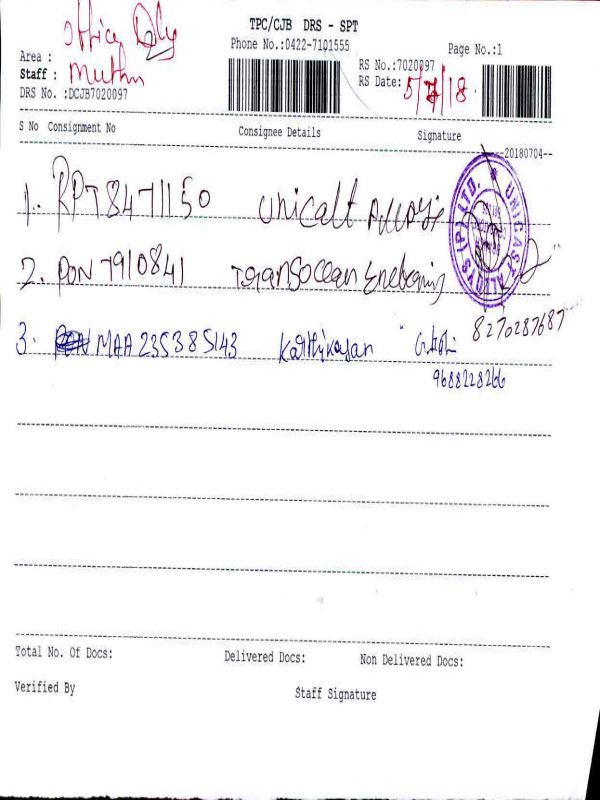 TPC/CJB DRS - SPT
Office Dly
Phone No.:0422-7101555
Page No.:1
Area :
RS No.:7020097
Staff : Muthu
RS Date: 5/7/18
DRS No. :DCJB7020097
S No Consignment No Consignee Details Signature
--20180704--
1. RPT8471150 Unicast Alloys
UNICAST ALLOYS (P) LTD.
2. PON 7910841 Transocean
3. MAA 235385143 Karthikayan 8270287687
9688228266
Total No. Of Docs: Delivered Docs: Non Delivered Docs:
Verified By Staff Signature